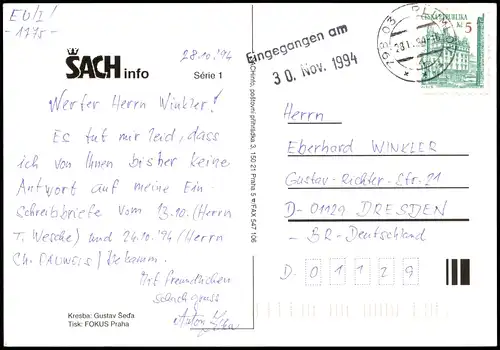 EU/I!
-1175-
28.10.'94
ŠACHinfo
Série 1
Werter Herrn Winkler!
Es tut mir leid, dass
ich von Ihnen bisher keine
Antwort auf meine Ein-
schreibbriefe vom 13.10. (Herrn
T. Wesche) und 24.10.'94 (Herrn
Ch. PAUWELS) bekamm.
Mit freundlichem
Schachgruss
Anton
Kresba: Gustav Šeďa
Tisk: FOKUS Praha
ŠACHinfo, poštovní přihrádka 3, 152 21 Praha 5 • FAX 547 106
Eingegangen am
30. Nov. 1994
ČESKÁ REPUBLIKA
Kč 5
Herrn
Eberhard WINKLER
Gustav-Richter-Str. 21
D-01129 DRESDEN
- BR-Deutschland
D- 01129